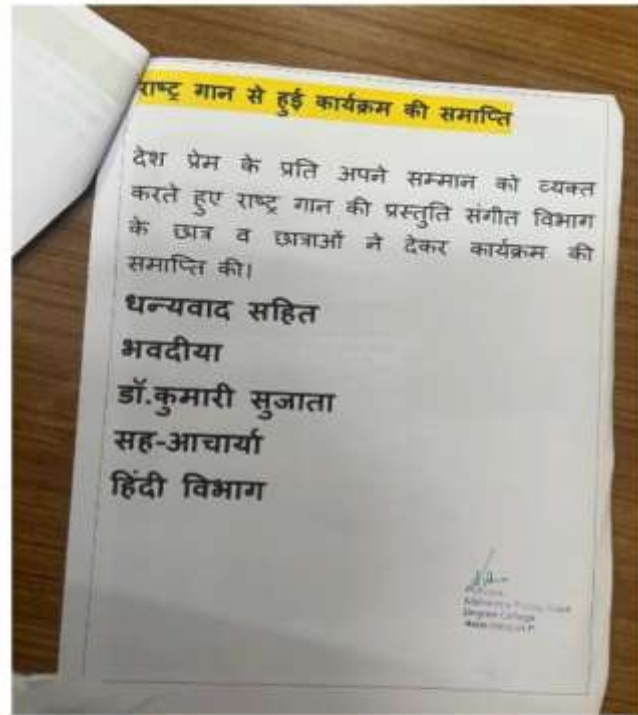 राष्ट्र गान से हुई कार्यक्रम की समाप्ति
देश प्रेम के प्रति अपने सम्मान को व्यक्त
करते हुए राष्ट्र गान की प्रस्तुति संगीत विभाग
के छात्र व छात्राओं ने देकर कार्यक्रम की
समाप्ति की।
धन्यवाद सहित
भवदीया
डॉ.कुमारी सुजाता
सह-आचार्या
हिंदी विभाग
Degree College